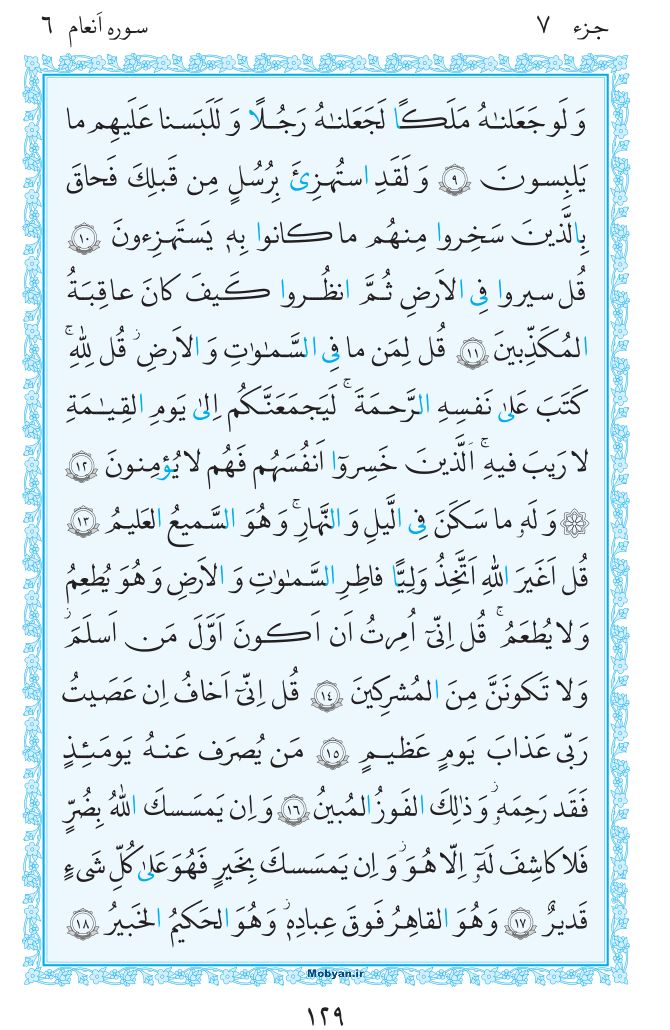 جزء ٧ سوره اَنعام ٦
وَ لَو جَعَلنـٰهُ مَلَكـًا لَجَعَلنـٰهُ رَجُـلًا وَ لَلَبَسنا عَلَيهِم ما
يَلبِسونَ ٩ وَ لَقَدِ استُهزِئَ بِرُسُلٍ مِن قَبلِكَ فَحاقَ
بِالَّذينَ سَخِروا مِنهُم ما كانوا بِهٖ يَستَهزِءونَ ١٠
قُل سيروا فِى الاَرضِ ثُمَّ انظُروا كَيفَ كانَ عاقِبَةُ
المُكَذِّبينَ ١١ قُل لِمَن ما فِى السَّمـٰوٰتِ وَ الاَرضِۖ قُل لِلّٰهِۚ
كَتَبَ عَلىٰ نَفسِهِ الرَّحمَةَۚ لَيَجمَعَنَّكُم اِلىٰ يَومِ القِيـٰمَةِ
لا رَيبَ فيهِۚ اَلَّذينَ خَسِروٓا اَنفُسَهُم فَهُم لا يُؤمِنونَ ١٢
۞ وَ لَهٗ ما سَكَنَ فِى الَّيلِ وَ النَّهارِۚ وَ هُوَ السَّميعُ العَليمُ ١٣
قُل اَغَيرَ اللّٰهِ اَتَّخِذُ وَلِيًّا فاطِرِ السَّمـٰوٰتِ وَ الاَرضِ وَ هُوَ يُطعِمُ
وَ لا يُطعَمُۚ قُل اِنّىٓ اُمِرتُ اَن اَكونَ اَوَّلَ مَن اَسلَمَۖ
وَ لا تَكونَنَّ مِنَ المُشرِكينَ ١٤ قُل اِنّىٓ اَخافُ اِن عَصَيتُ
رَبّى عَذابَ يَومٍ عَظيمٍ ١٥ مَن يُصرَف عَنهُ يَومَئِذٍ
فَقَد رَحِمَهٗۚ وَ ذٰلِكَ الفَوزُ المُبينُ ١٦ وَ اِن يَمسَسكَ اللّٰهُ بِضُرٍّ
فَلا كاشِفَ لَهٗٓ اِلّا هُوَۖ وَ اِن يَمسَسكَ بِخَيرٍ فَهُوَ عَلىٰ كُلِّ شَىءٍ
قَديرٌ ١٧ وَ هُوَ القاهِرُ فَوقَ عِبادِهٖۚ وَ هُوَ الحَكيمُ الخَبيرُ ١٨
Mobyan.ir
١٢٩